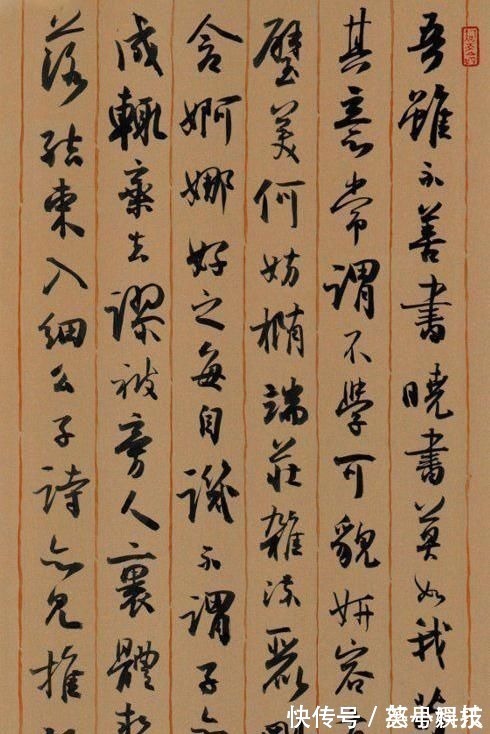 吾雖不善書曉書莫如我
其意常謂不學可貌妍容
璧美何妨橢端莊雜流麗
含婀娜好之每自譏不謂子亦
成輒棄去謬被旁人裹體勢
落結束入細么子詩亦見推
快传号/